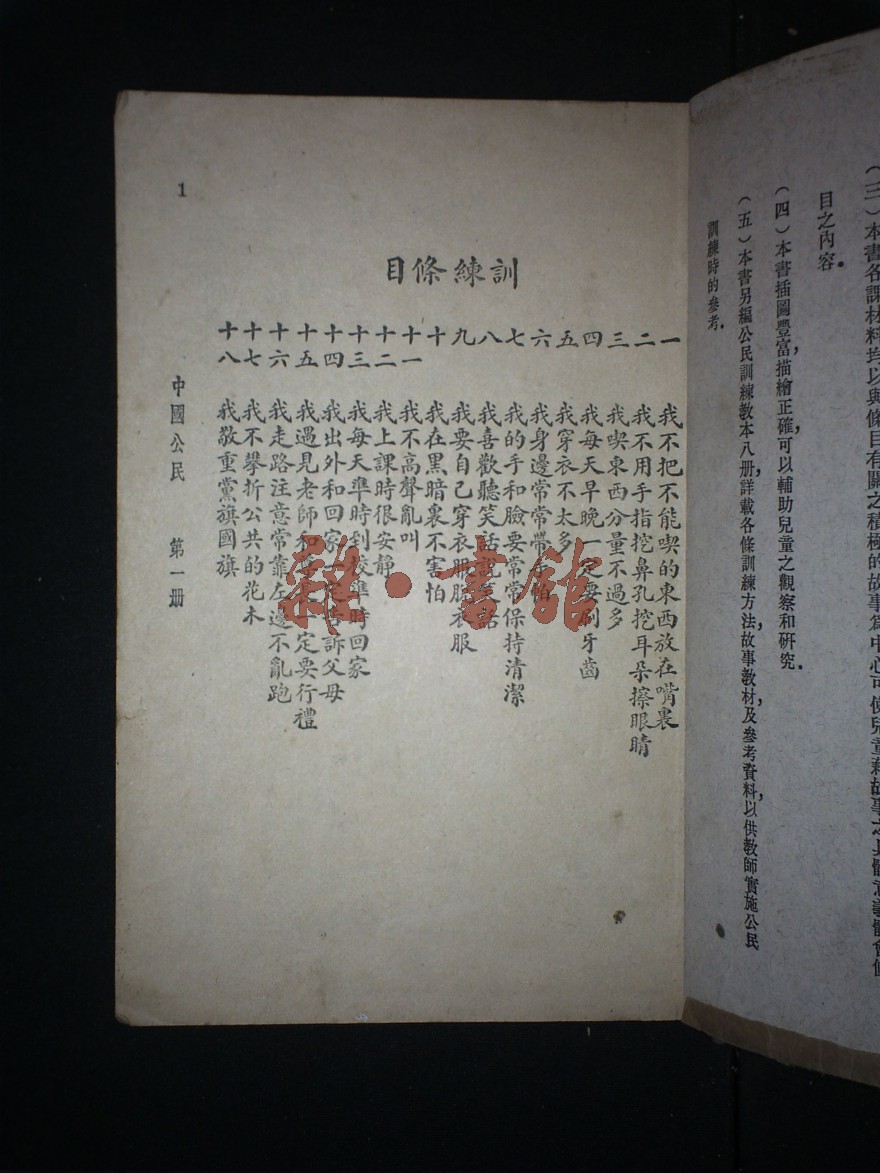 (三)本書各課材料均以與條目有關之積極的故事爲中心可使兒童藉故事之具體意義體會條
目之內容.
(四)本書插圖豐富,描繪正確,可以輔助兒童之觀察和研究.
(五)本書另編公民訓練教本八册,詳載各條訓練方法,故事教材,及參考資料,以供教師實施公民
訓練時的參考.
訓練條目
一 我不把不能喫的東西放在嘴裏
二 我不用手指挖鼻孔挖耳朵擦眼睛
三 我喫東西分量不過多
四 我每天早晚一定要刷牙齒
五 我穿衣不太多
六 我身邊常常帶手帕
七 我的手和臉要常常保持清潔
八 我喜歡聽笑話說笑話
九 我要自己穿衣服脫衣服
十 我在黑暗裏不害怕
十一 我不高聲亂叫
十二 我上課時很安靜
十三 我每天準時到校準時回家
十四 我出外和回家一定告訴父母
十五 我遇見老師和 一定要行禮
十六 我走路注意常靠左邊不亂跑
十七 我不攀折公共的花木
十八 我敬重黨旗國旗
中國公民 第一册
1
雜·書館